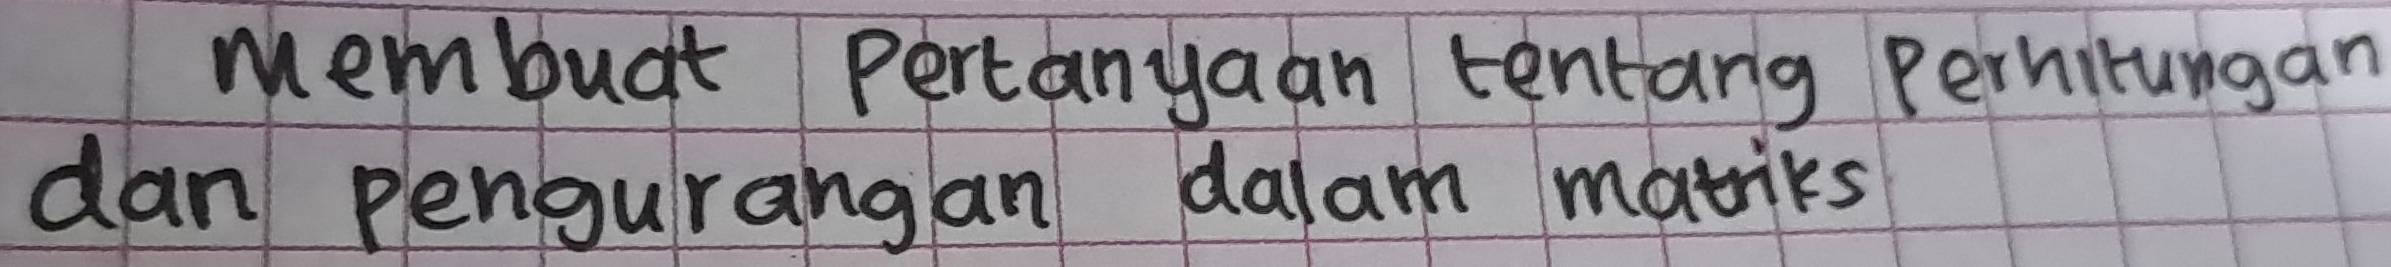 Membuat Pertanyaan tentang Perhitungan
dan pengurangan dalam matriks